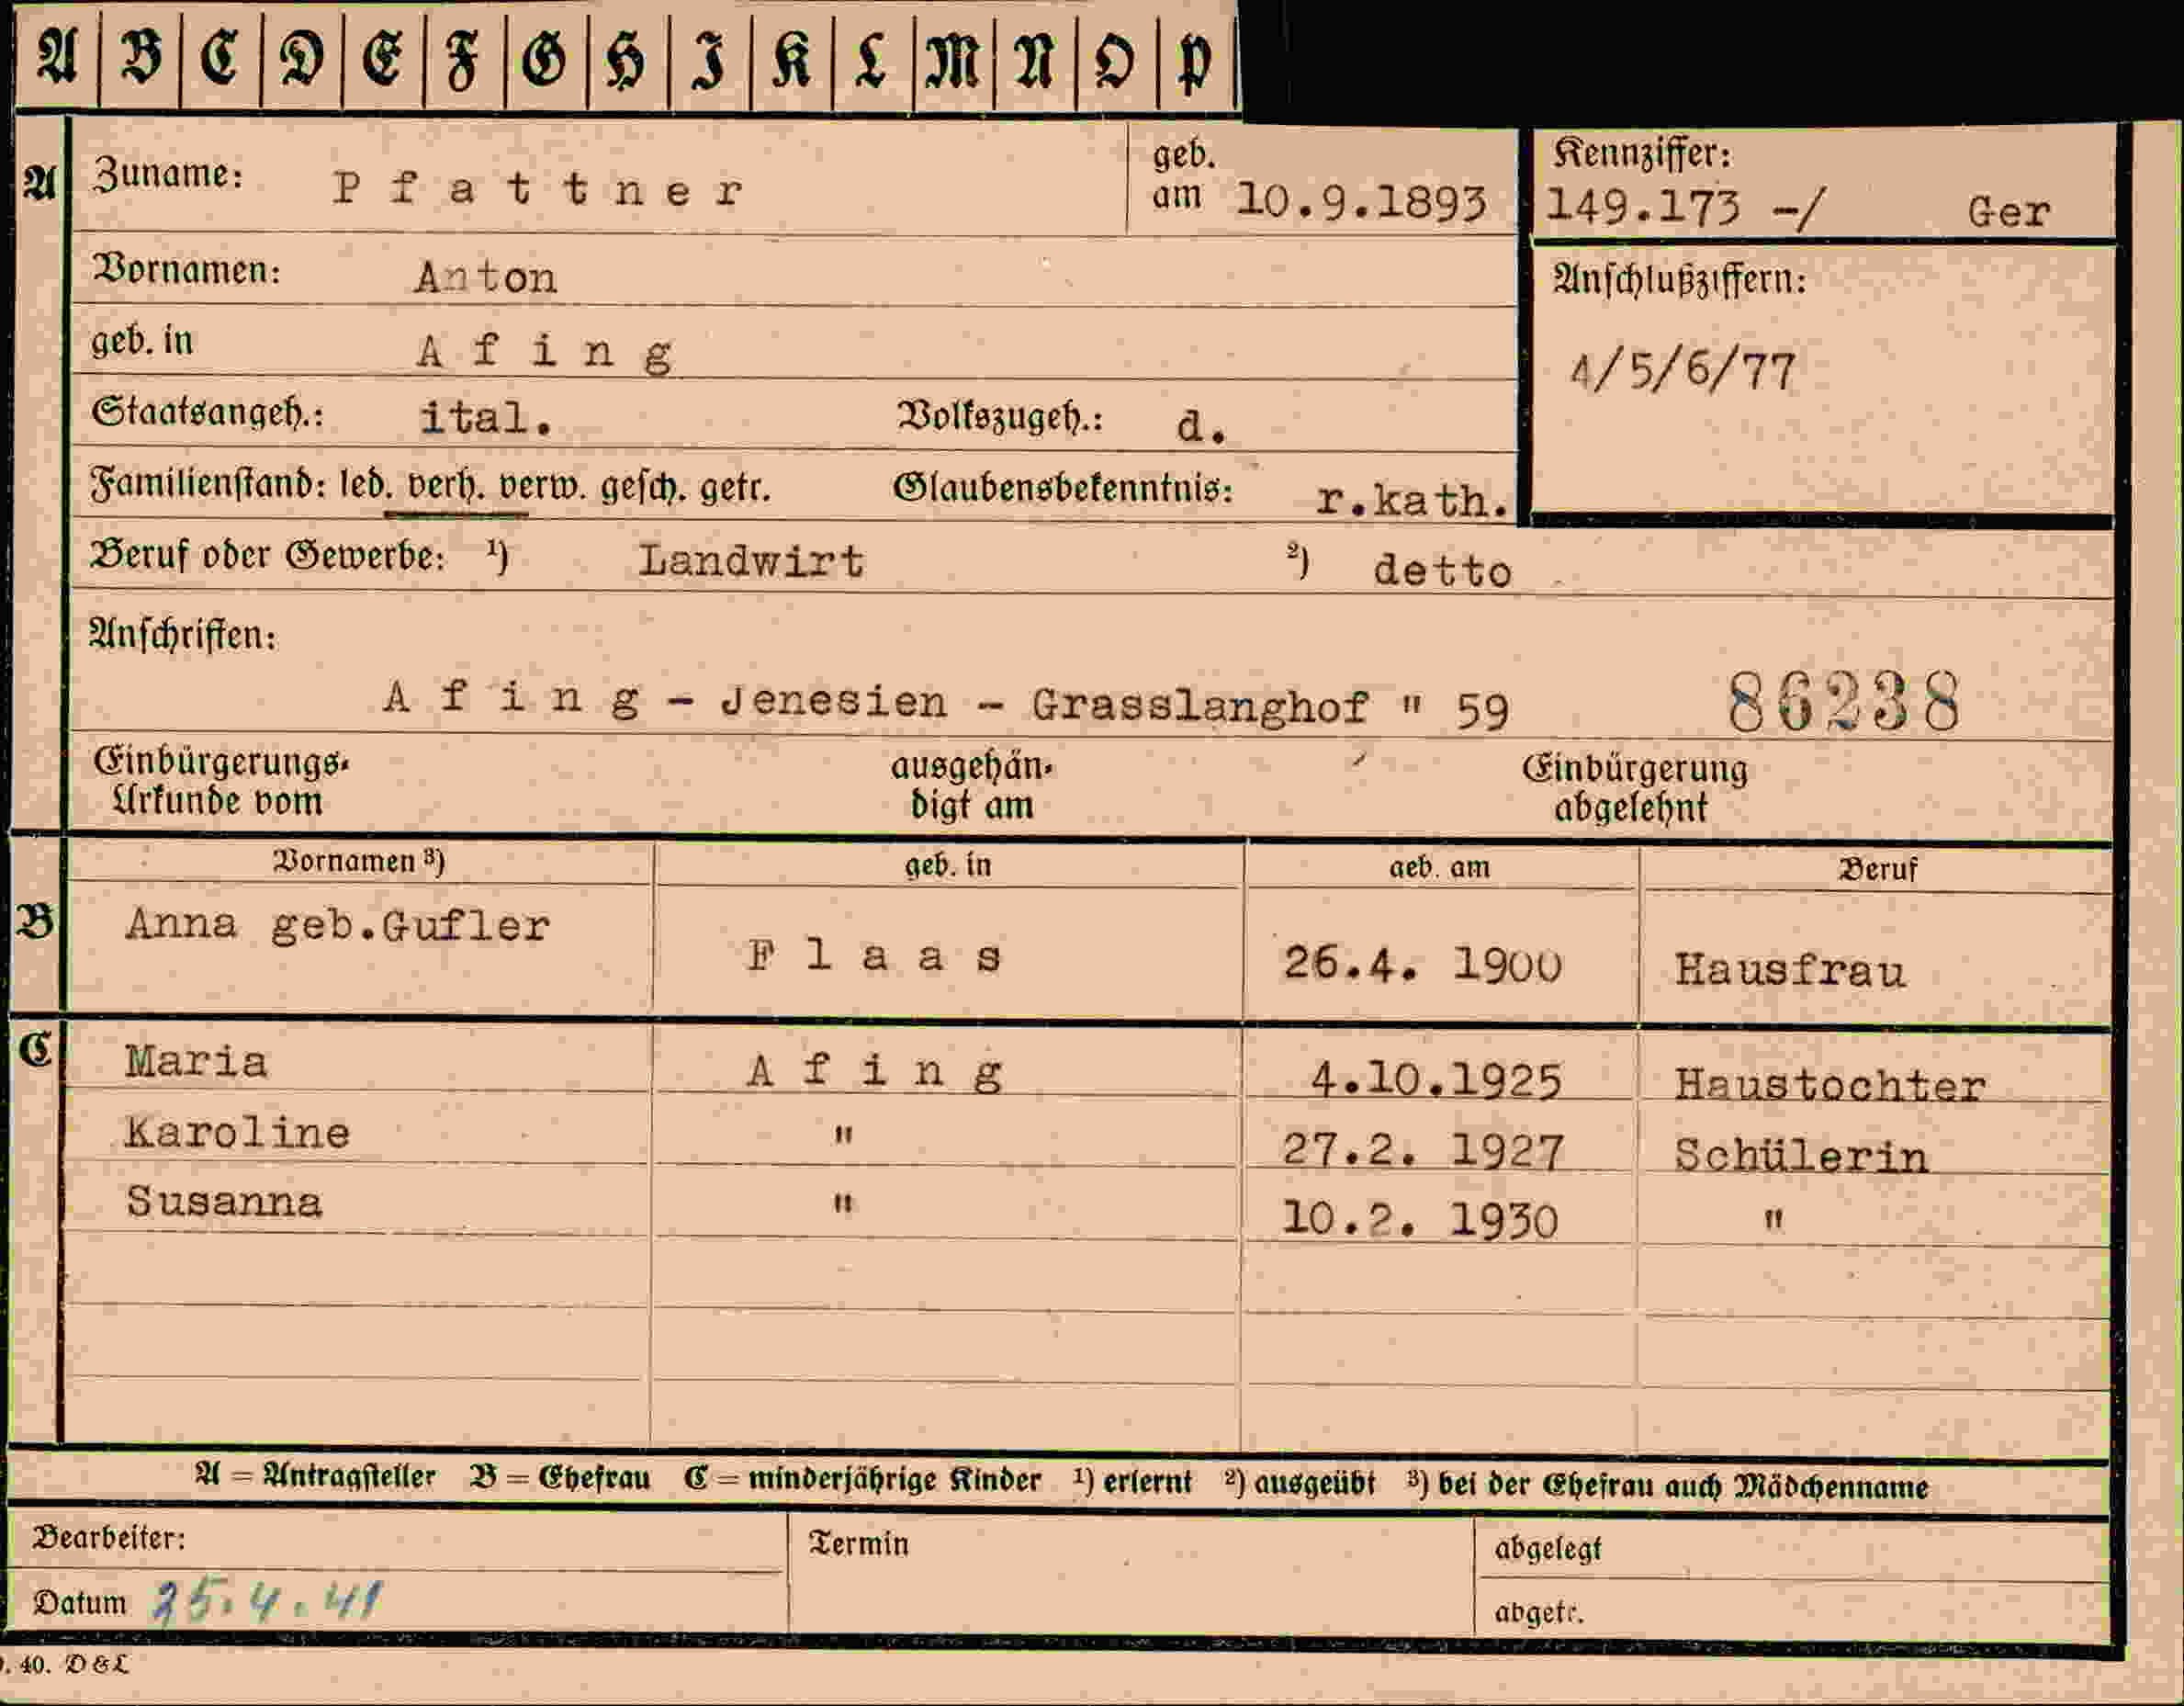 A B C D E F G H I K L M N O P
A Zuname: Pfattner geb. am 10.9.1893 Kennziffer: 149.173 -/ Ger
Vornamen: Anton Anschlußziffern:
geb. in Afing 4/5/6/77
Staatsangeh.: ital. Volkszugeh.: d.
Familienstand: led. verh. verw. gesch. getr. Glaubensbekenntnis: r.kath.
Beruf oder Gewerbe: ¹) Landwirt ²) detto
Anschriften:
Afing - Jenesien - Grasslanghof " 59 86238
Einbürgerungs- ausgehän- Einbürgerung
Urkunde vom digt am abgelehnt
Vornamen ³) geb. in geb. am Beruf
B Anna geb.Gufler Flaas 26.4. 1900 Hausfrau
C Maria Afing 4.10.1925 Haustochter
Karoline " 27.2. 1927 Schülerin
Susanna " 10.2. 1930 "
A = Antragsteller B = Ehefrau C = minderjährige Kinder ¹) erlernt ²) ausgeübt ³) bei der Ehefrau auch Mädchenname
Bearbeiter: Termin abgelegt
Datum 25.4.41 abgetr.
. 40. D & L